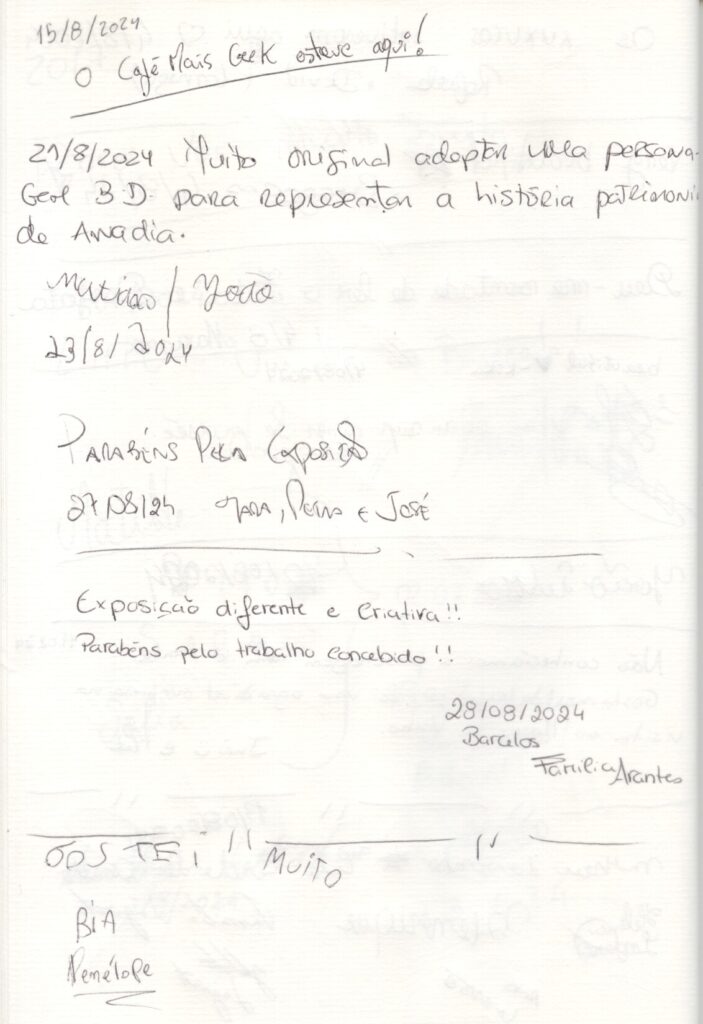 15/8/2024
O Café Mais Geek esteve aqui!
21/8/2024 Muito original adoptar uma persona-
gem B.D. para representar a história patrimoni
de Anadia.
Matias / João
23/8/2024
Parabéns pela Exposição
27/08/24 Mara, Pedro e José
Exposição diferente e criativa!!
Parabéns pelo trabalho concebido!!
28/08/2024
Barcelos
Família Arantes
GOSTEI MUITO
BIA
Penélope